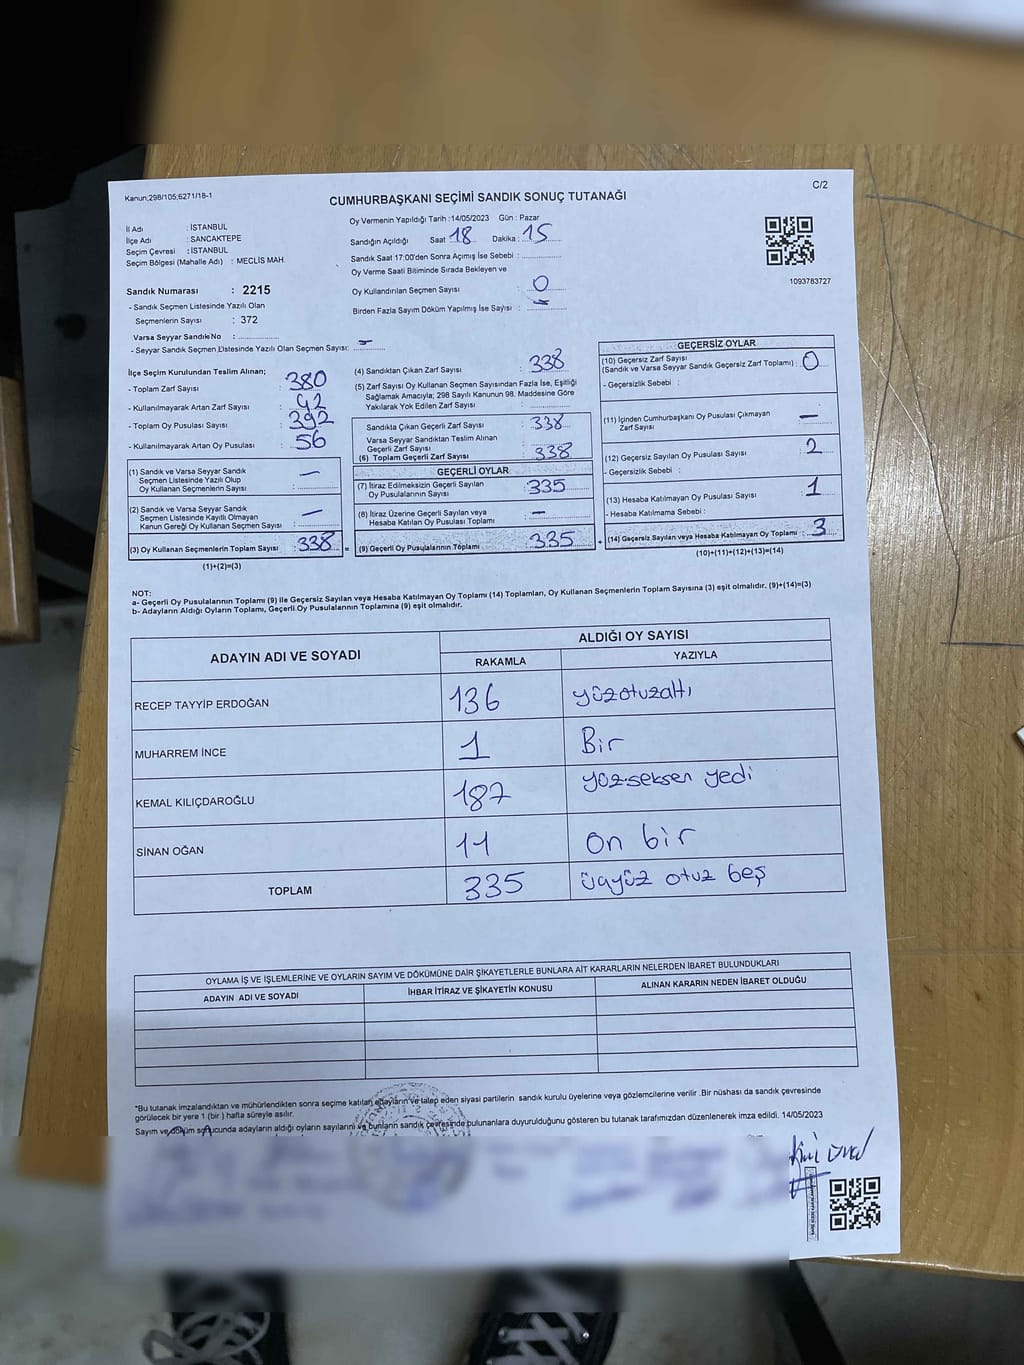 Kanun;298/105;6271/18-1
C/2
CUMHURBAŞKANI SEÇİMİ SANDIK SONUÇ TUTANAĞI
İl Adı : İSTANBUL
İlçe Adı : SANCAKTEPE
Seçim Çevresi : İSTANBUL
Seçim Bölgesi (Mahalle Adı) : MECLİS MAH.
Sandık Numarası : 2215
- Sandık Seçmen Listesinde Yazılı Olan
Seçmenlerin Sayısı : 372
Varsa Seyyar Sandık No :
- Seyyar Sandık Seçmen Listesinde Yazılı Olan Seçmen Sayısı: –
Oy Vermenin Yapıldığı Tarih :14/05/2023 Gün : Pazar
Sandığın Açıldığı Saat 18 Dakika : 15
Sandık Saat 17:00'den Sonra Açımış İse Sebebi :
Oy Verme Saati Bitiminde Sırada Bekleyen ve
Oy Kullandırılan Seçmen Sayısı : 0
Birden Fazla Sayım Döküm Yapılmış İse Sayısı : –
1093783727
İlçe Seçim Kurulundan Teslim Alınan;
- Toplam Zarf Sayısı : 380
- Kullanılmayarak Artan Zarf Sayısı : 42
- Toplam Oy Pusulası Sayısı : 392
- Kullanılmayarak Artan Oy Pusulası : 56
(1) Sandık ve Varsa Seyyar Sandık
Seçmen Listesinde Yazılı Olup
Oy Kullanan Seçmenlerin Sayısı : –
(2) Sandık ve Varsa Seyyar Sandık
Seçmen Listesinde Kayıtlı Olmayan
Kanun Gereği Oy Kullanan Seçmen Sayısı : –
(3) Oy Kullanan Seçmenlerin Toplam Sayısı : 338 =
(1)+(2)=(3)
(4) Sandıktan Çıkan Zarf Sayısı : 338
(5) Zarf Sayısı Oy Kullanan Seçmen Sayısından Fazla İse, Eşitliği
Sağlamak Amacıyla; 298 Sayılı Kanunun 98. Maddesine Göre
Yakılarak Yok Edilen Zarf Sayısı :
Sandıkta Çıkan Geçerli Zarf Sayısı : 338
Varsa Seyyar Sandıktan Teslim Alınan
Geçerli Zarf Sayısı :
(6) Toplam Geçerli Zarf Sayısı : 338
GEÇERLİ OYLAR
(7) İtiraz Edilmeksizin Geçerli Sayılan
Oy Pusulalarının Sayısı : 335
(8) İtiraz Üzerine Geçerli Sayılan veya
Hesaba Katılan Oy Pusulası Toplamı : –
(9) Geçerli Oy Pusulalarının Toplamı : 335 +
GEÇERSİZ OYLAR
(10) Geçersiz Zarf Sayısı
(Sandık ve Varsa Seyyar Sandık Geçersiz Zarf Toplamı) : 0
- Geçersizlik Sebebi :
(11) İçinden Cumhurbaşkanı Oy Pusulası Çıkmayan
Zarf Sayısı : –
(12) Geçersiz Sayılan Oy Pusulası Sayısı : 2
- Geçersizlik Sebebi :
(13) Hesaba Katılmayan Oy Pusulası Sayısı : 1
- Hesaba Katılmama Sebebi :
(14) Geçersiz Sayılan veya Hesaba Katılmayan Oy Toplamı : 3
(10)+(11)+(12)+(13)=(14)
NOT:
a- Geçerli Oy Pusulalarının Toplamı (9) ile Geçersiz Sayılan veya Hesaba Katılmayan Oy Toplamı (14) Toplamları, Oy Kullanan Seçmenlerin Toplam Sayısına (3) eşit olmalıdır. (9)+(14)=(3)
b- Adayların Aldığı Oyların Toplamı, Geçerli Oy Pusulalarının Toplamına (9) eşit olmalıdır.
ADAYIN ADI VE SOYADI ALDIĞI OY SAYISI
RAKAMLA YAZIYLA
RECEP TAYYİP ERDOĞAN 136 yüzotuzaltı
MUHARREM İNCE 1 Bir
KEMAL KILIÇDAROĞLU 187 yüz seksen yedi
SİNAN OĞAN 11 On bir
TOPLAM 335 üçyüz otuz beş
OYLAMA İŞ VE İŞLEMLERİNE VE OYLARIN SAYIM VE DÖKÜMÜNE DAİR ŞİKAYETLERLE BUNLARA AİT KARARLARIN NELERDEN İBARET BULUNDUKLARI
ADAYIN ADI VE SOYADI İHBAR İTİRAZ VE ŞİKAYETİN KONUSU ALINAN KARARIN NEDEN İBARET OLDUĞU
*Bu tutanak imzalandıktan ve mühürlendikten sonra seçime katılan adayların ve talep eden siyasi partilerin sandık kurulu üyelerine veya gözlemcilerine verilir .Bir nüshası da sandık çevresinde
görülecek bir yere 1 (bir ) hafta süreyle asılır.
Sayım ve döküm sonucunda adayların aldığı oyların sayılarını ve bunların sandık çevresinde bulunanlara duyurulduğunu gösteren bu tutanak tarafımızdan düzenlenerek imza edildi. 14/05/2023